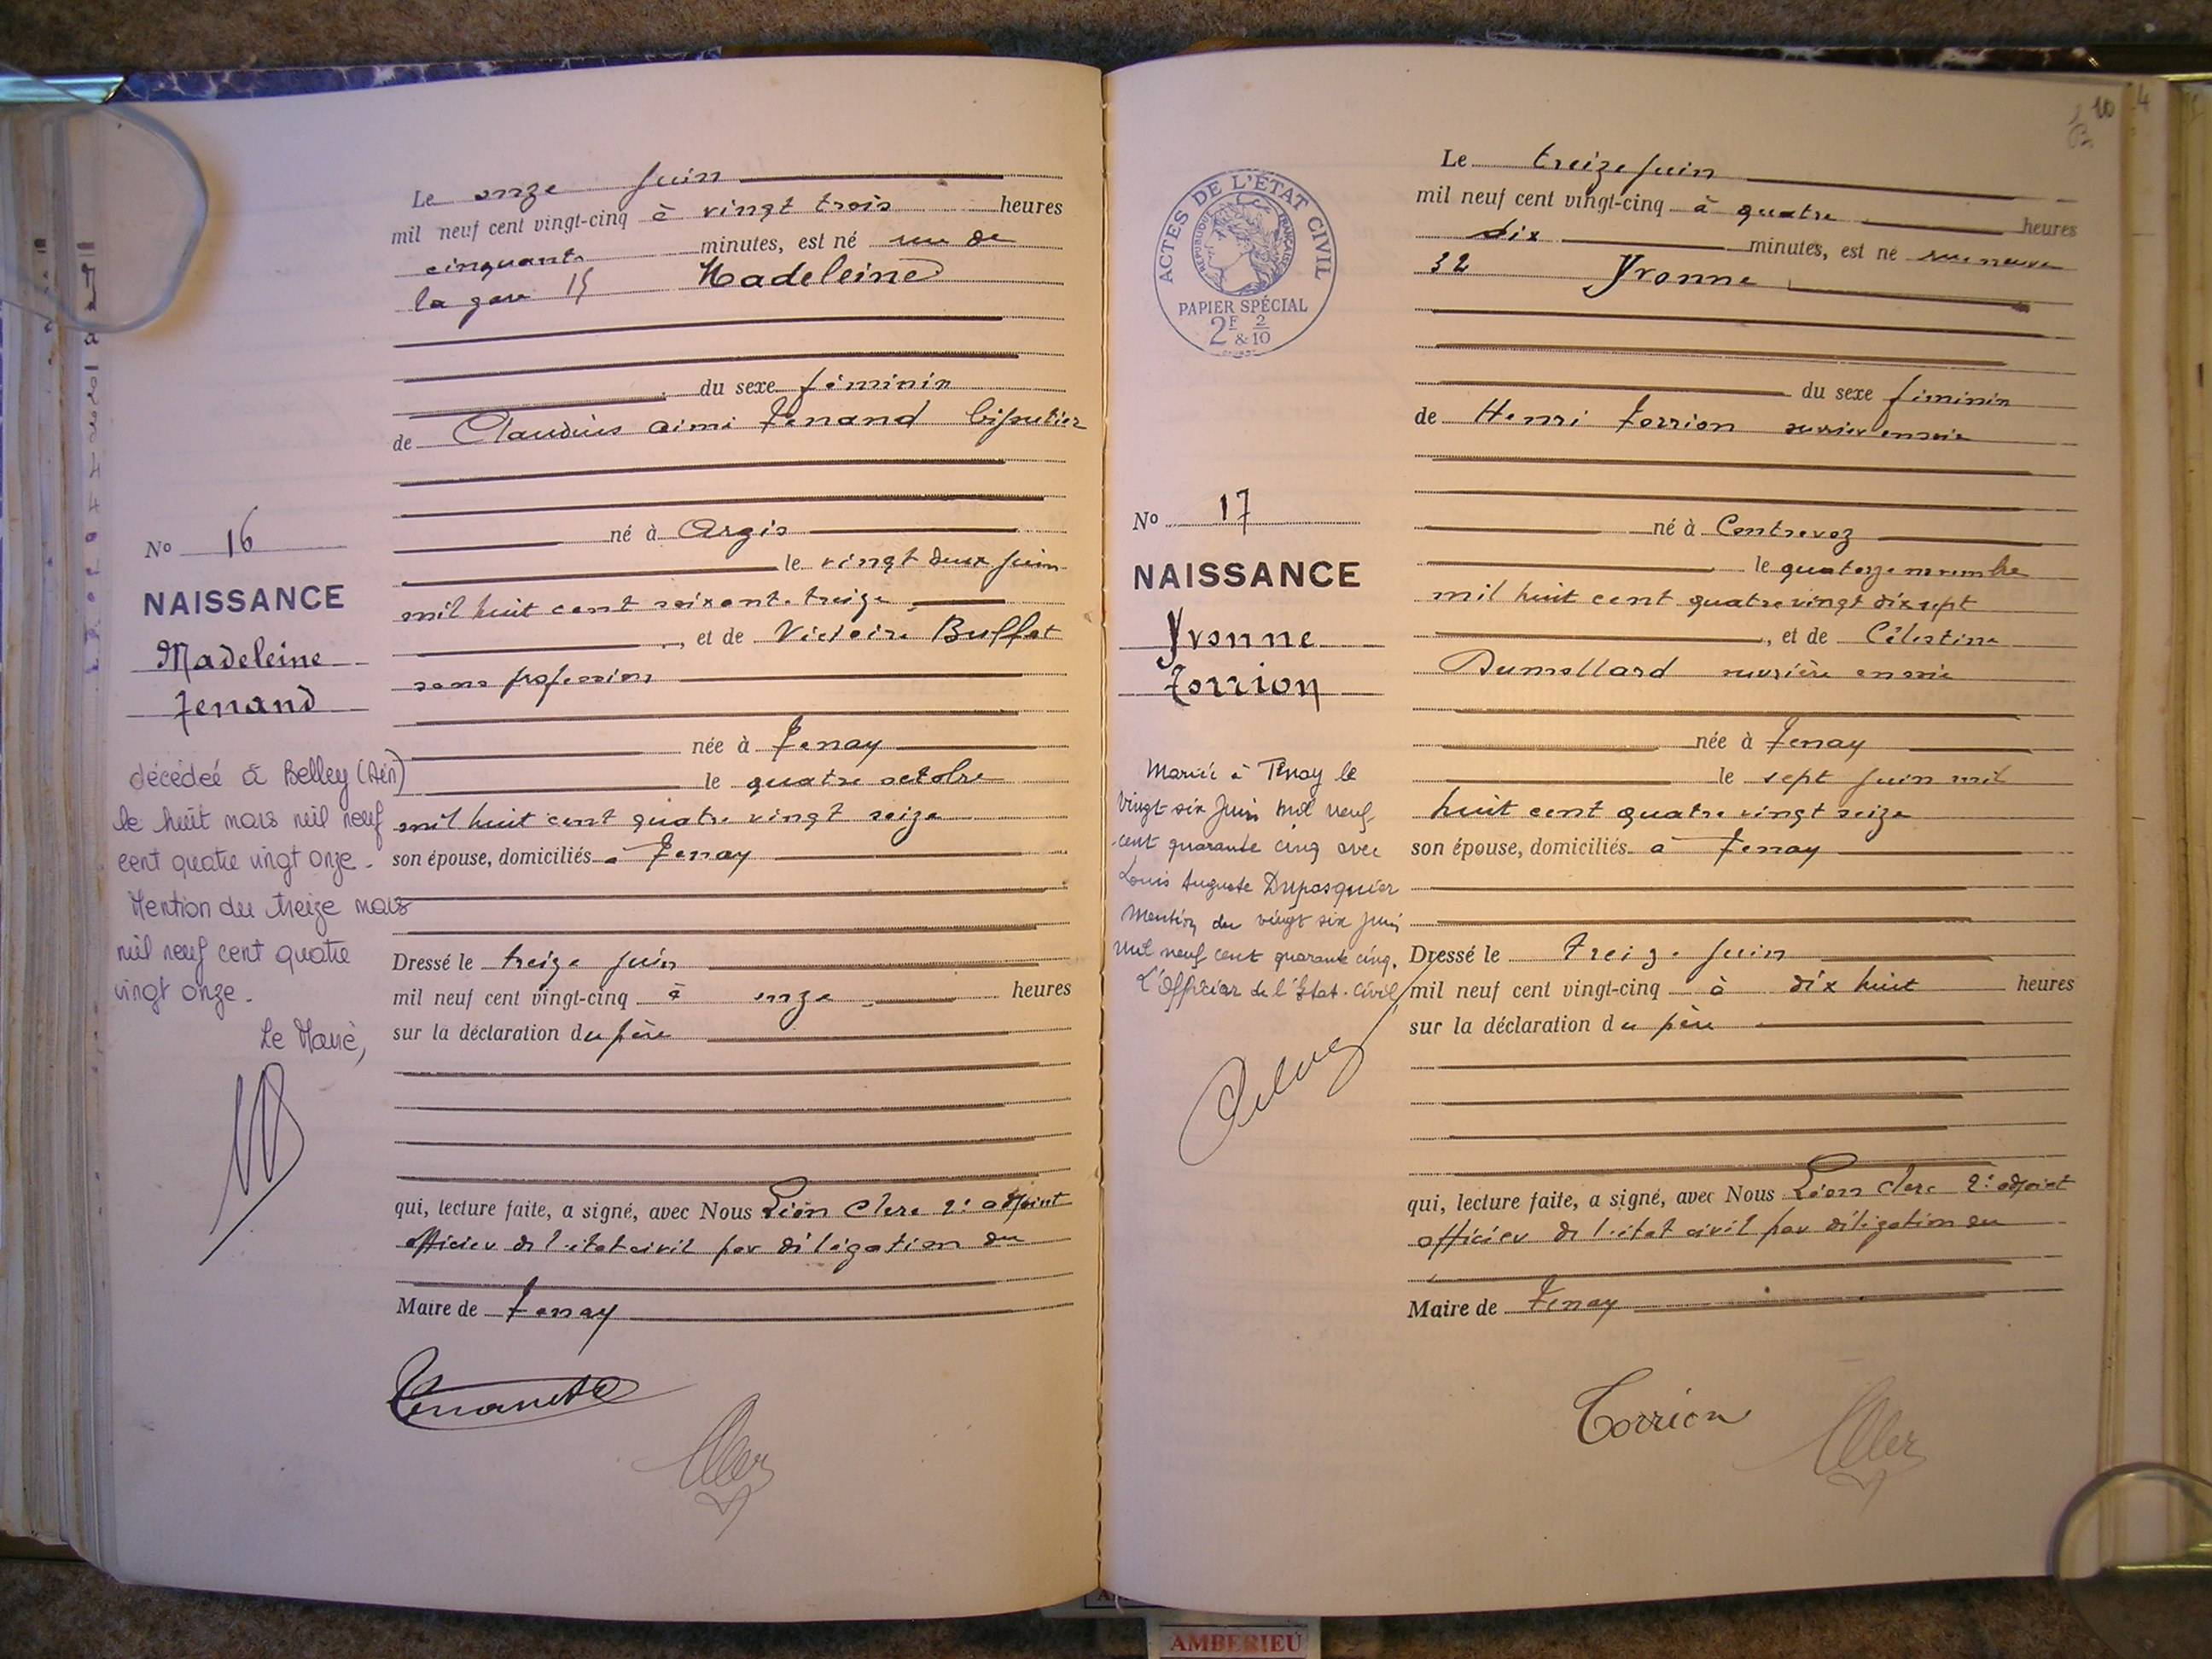 Le onze juin
mil neuf cent vingt-cinq à vingt trois heures
cinquante minutes, est né rue de
la gare 15 Madeleine
du sexe féminin
de Claudius Aimé Tenand bijoutier
né à Argis
le vingt deux juin
mil huit cent soixante treize
, et de Victoire Buffet
sans profession
née à Tenay
le quatre octobre
mil huit cent quatre vingt seize
son épouse, domiciliés à Tenay
Dressé le treize juin
mil neuf cent vingt-cinq à onze heures
sur la déclaration du père
qui, lecture faite, a signé, avec Nous Léon Clerc 2e adjoint
officier de l'état civil par délégation du
Maire de Tenay
No 16
NAISSANCE
Madeleine
Tenand
décédeé à Belley (Ain)
le huit mars mil neuf
cent quatre vingt onze.
Mention du treize mars
mil neuf cent quatre
vingt onze.
Le Maire,
10
4
ACTES DE L'ÉTAT CIVIL
RÉPUBLIQUE FRANÇAISE
PAPIER SPÉCIAL
2F & 2/10
Le treize juin
mil neuf cent vingt-cinq à quatre heures
dix minutes, est né rue neuve
32 Yvonne
du sexe féminin
de Henri Torrion ouvrier en soie
né à Contrevoz
le quatorze novembre
mil huit cent quatre vingt dix sept
, et de Célestine
Dumollard ouvrière en soie
née à Tenay
le sept juin mil
huit cent quatre vingt seize
son épouse, domiciliés à Tenay
Dressé le treize juin
mil neuf cent vingt-cinq à dix huit heures
sur la déclaration du père
qui, lecture faite, a signé, avec Nous Léon Clerc 2e adjoint
officier de l'état civil par délégation du
Maire de Tenay
Torrion
No 17
NAISSANCE
Yvonne
Torrion
Mariée à Tenay le
vingt six Juin mil neuf
cent quarante cinq avec
Louis Auguste Dupasquier
Mention du vingt six juin
mil neuf cent quarante cinq.
L'Officier de l'Etat-Civil
AMBERIEU